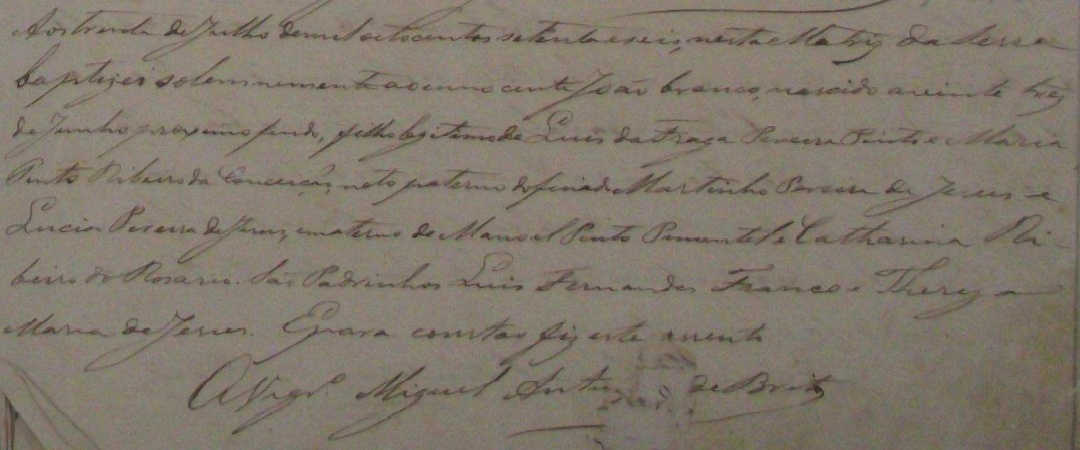 Aos trinta de Julho de mil oitocentos setenta e seis, nesta Matriz da Serra
baptizei solemnemente ao innocente João branco, nascido a vinte trez
de Junho proximo findo, filho legitimo de Luis da Fraga Pereira Pinto e Maria
Pinto Ribeiro da Conceição, neto paterno do finado Martinho Pereira de Jesus e
Lucia Pereira de Jesus, e materno de Manoel Pinto Pimentel e Catharina Ri-
beiro do Rosario. São Padrinhos Luis Fernandes Franco e Thereza
Maria de Jesus. E para constar fiz este assento
O Vigr.º Miguel de Brito